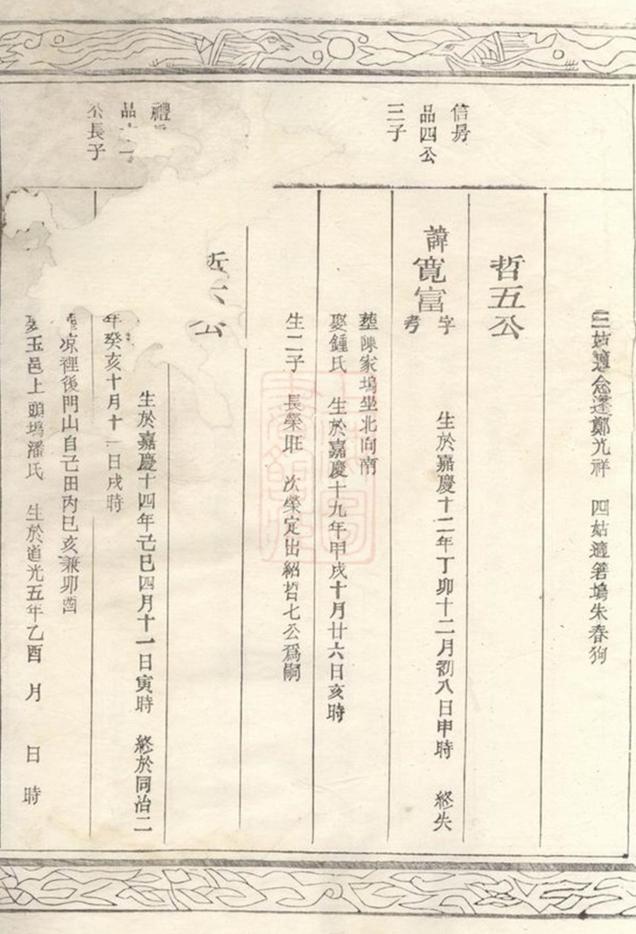 三姑適念遂鄭光祥　四姑適箬塢朱春狗
信房
品四公
三子
哲五公
諱寬富
字
考
生於嘉慶十二年丁卯十二月初八日申時　終失
葬陳家塢坐北向南
娶鍾氏　生於嘉慶十九年甲戌十月廿六日亥時
生二子　長榮旺　次榮定出紹哲七公爲嗣
禮
品
公長子
哲六公
生於嘉慶十四年己巳四月十一日寅時　終於同治二
年癸亥十月十一日戌時
凉裡後門山自己田丙巳亥兼卯酉
娶玉邑上頭塢潘氏　生於道光五年乙酉　月　日　時